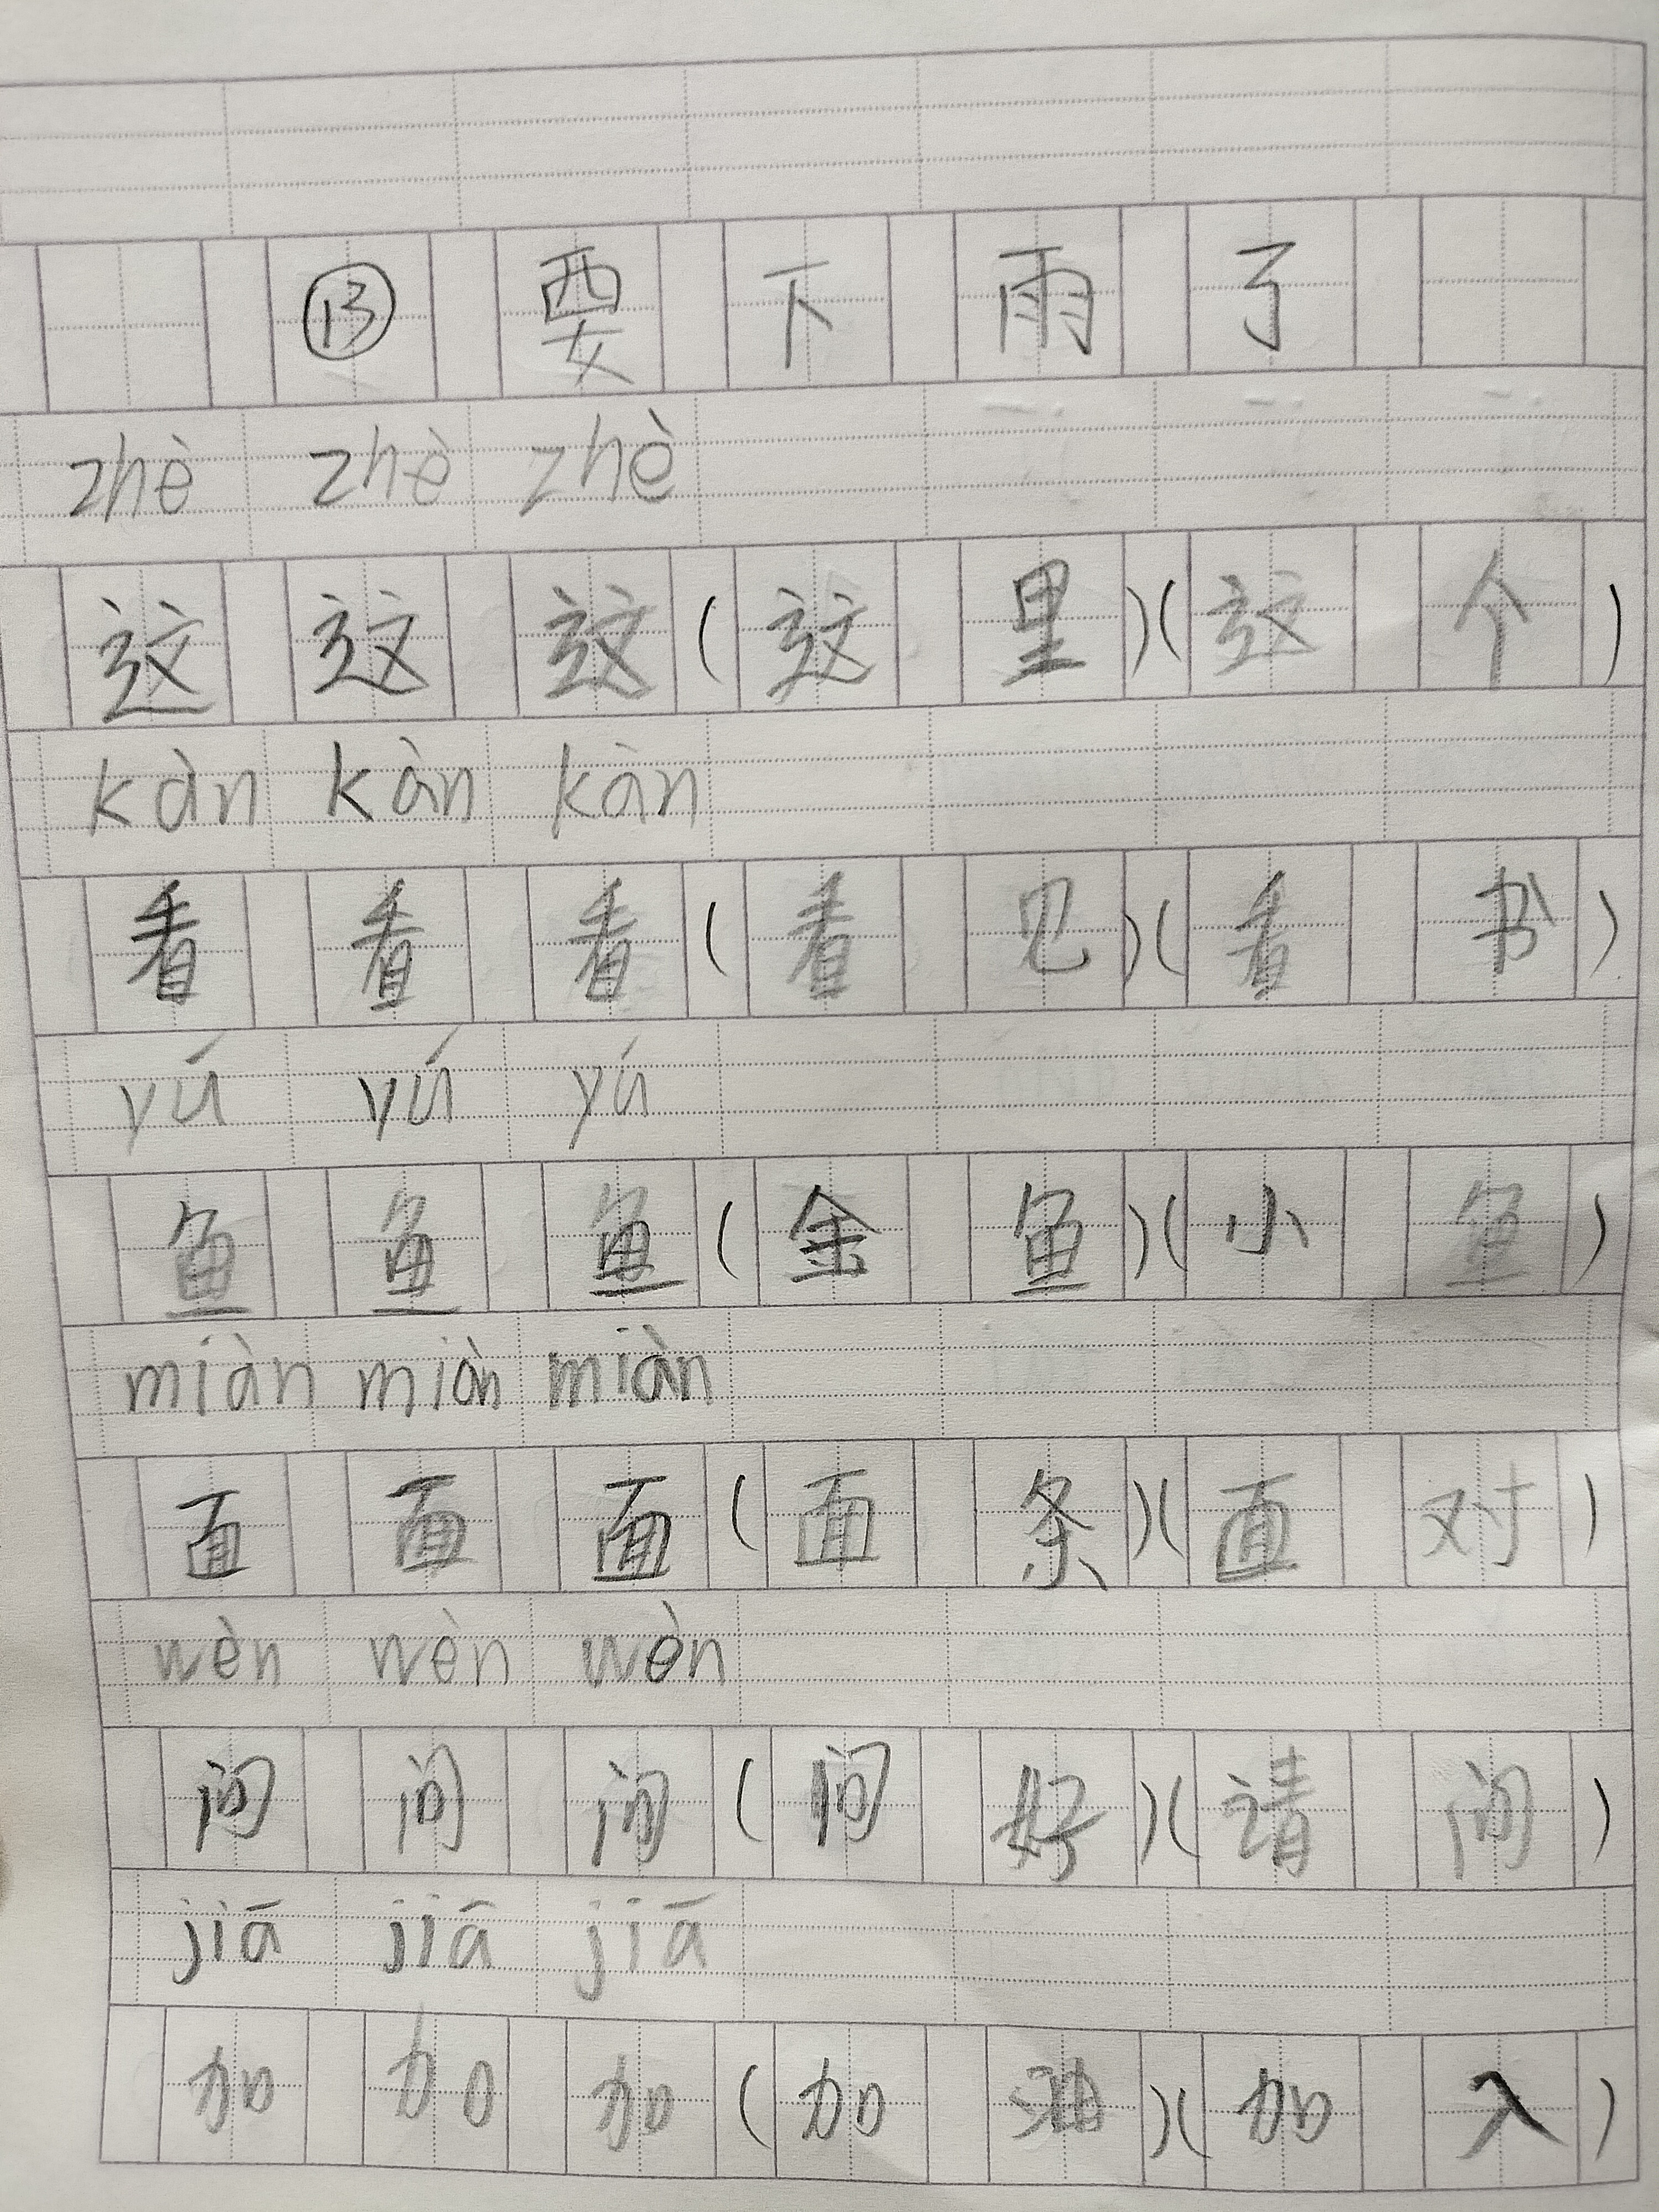 ⑬要下雨了
zhè zhè zhè
这这这(这里)(这个)
kàn kàn kàn
看看看(看见)(看书)
yú yú yú
鱼鱼鱼(金鱼)(小鱼)
miàn miàn miàn
面面面(面条)(面对)
wèn wèn wèn
问问问(问好)(请问)
jiā jiā jiā
加加加(加油)(加入)